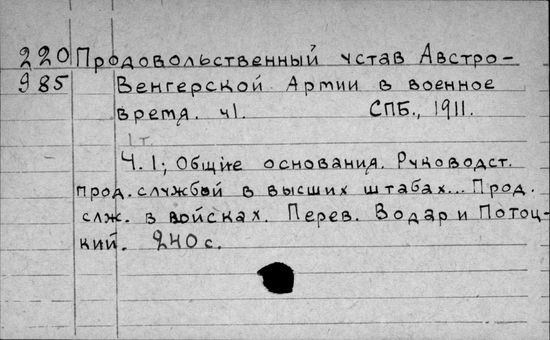 220 Продовольственный устав Австро-
985 Венгерской Армии в военное
время. ч1. СПБ., 1911.
1т.
Ч.1; Общие основания. Руководст.
прод. службой в высших штабах... Прод.
служ. в войсках. Перев. Водар и Потоц-
кий. 240 с.